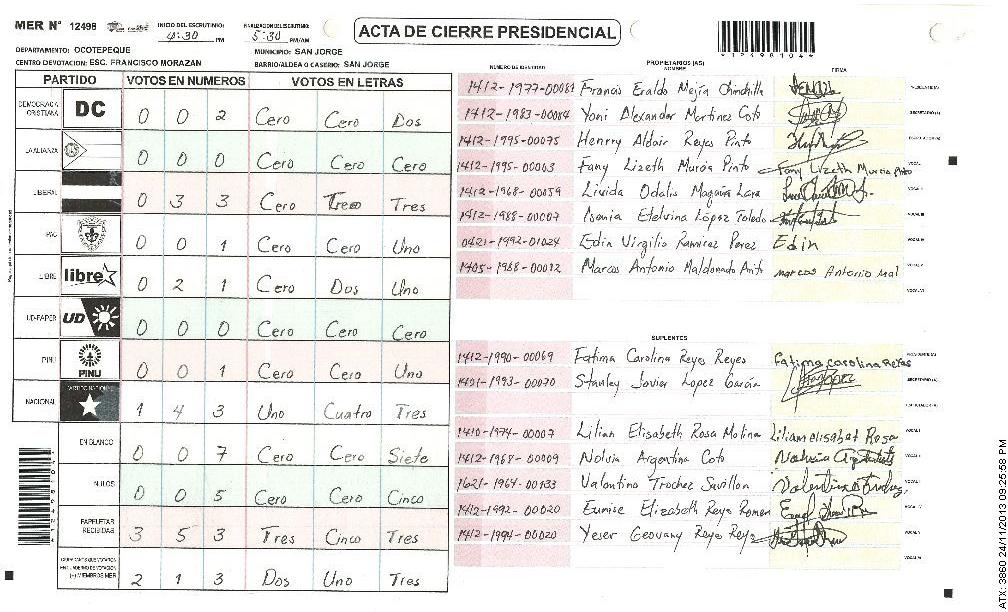 MER Nº 12498
INICIO DEL ESCRUTINIO: 4:30 PM
FINALIZACION DEL ESCRUTINIO: 5:30 PM/AM
ACTA DE CIERRE PRESIDENCIAL
*12498104*
DEPARTAMENTO: OCOTEPEQUE
MUNICIPIO: SAN JORGE
CENTRO DE VOTACION: ESC. FRANCISCO MORAZAN
BARRIO/ALDEA O CASERIO: SAN JORGE
PARTIDO VOTOS EN NUMEROS VOTOS EN LETRAS
DEMOCRACIA CRISTIANA DC 0 0 2 Cero Cero Dos
LA ALIANZA 0 0 0 Cero Cero Cero
LIBERAL 0 3 3 Cero Tres Tres
PAC 0 0 1 Cero Cero Uno
LIBRE libre 0 2 1 Cero Dos Uno
UD-FAPER UD 0 0 0 Cero Cero Cero
PINU PINU 0 0 1 Cero Cero Uno
NACIONAL 1 4 3 Uno Cuatro Tres
EN BLANCO 0 0 7 Cero Cero Siete
NULOS 0 0 5 Cero Cero Cinco
PAPELETAS RECIBIDAS 3 5 3 Tres Cinco Tres
(+) MIEMBROS MER 2 1 3 Dos Uno Tres
NUMERO DE IDENTIDAD PROPIETARIOS (AS) NOMBRE FIRMA
1412-1977-00081 Francis Eraldo Mejia Chinchilla
1412-1983-00084 Yoni Alexander Martinez Coto
1412-1995-00075 Henrry Aldair Reyes Pinto
1412-1995-00063 Fany Lizeth Murcia Pinto Fany Lizeth Murcia Pinto
1412-1968-00059 Livida Odalis Magaña Lara
1412-1988-00007 Isonia Etelvina López Toledo
0421-1992-01024 Edin Virgilio Ramirez Perez Edin
1405-1988-00012 Marcos Antonio Maldonado marcos Antonio Mal
SUPLENTES
1412-1990-00069 Fatima Carolina Reyes Reyes Fatima Carolina Reyes
1421-1993-00070 Stanley Javier Lopez García
1410-1974-00007 Lilian Elisabeth Rosa Molina Lilian elisabet Rosa
1412-1968-00009 Nolvia Argentina Coto
1621-1964-00133 Valentino Trochez Sevillon
1412-1992-00020 Eunise Elizabeth Reyes Romero
1412-1994-00020 Yeser Geovany Reyes Reyes
ATX: 3860 24/11/2013 09:25:58 PM